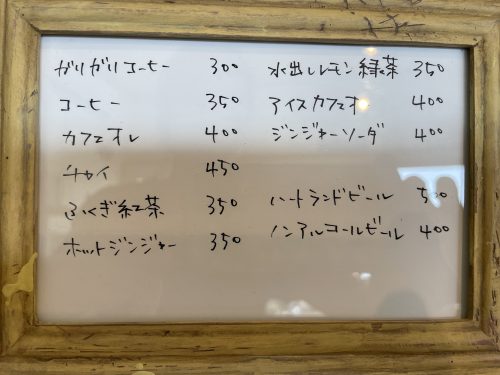 ガリガリコーヒー 300
コーヒー 350
カフェオレ 400
チャイ 450
ふくぎ紅茶 350
ホットジンジャー 350
水出しレモン緑茶 350
アイスカフェオレ 400
ジンジャーソーダ 400
ハートランドビール 500
ノンアルコールビール 400